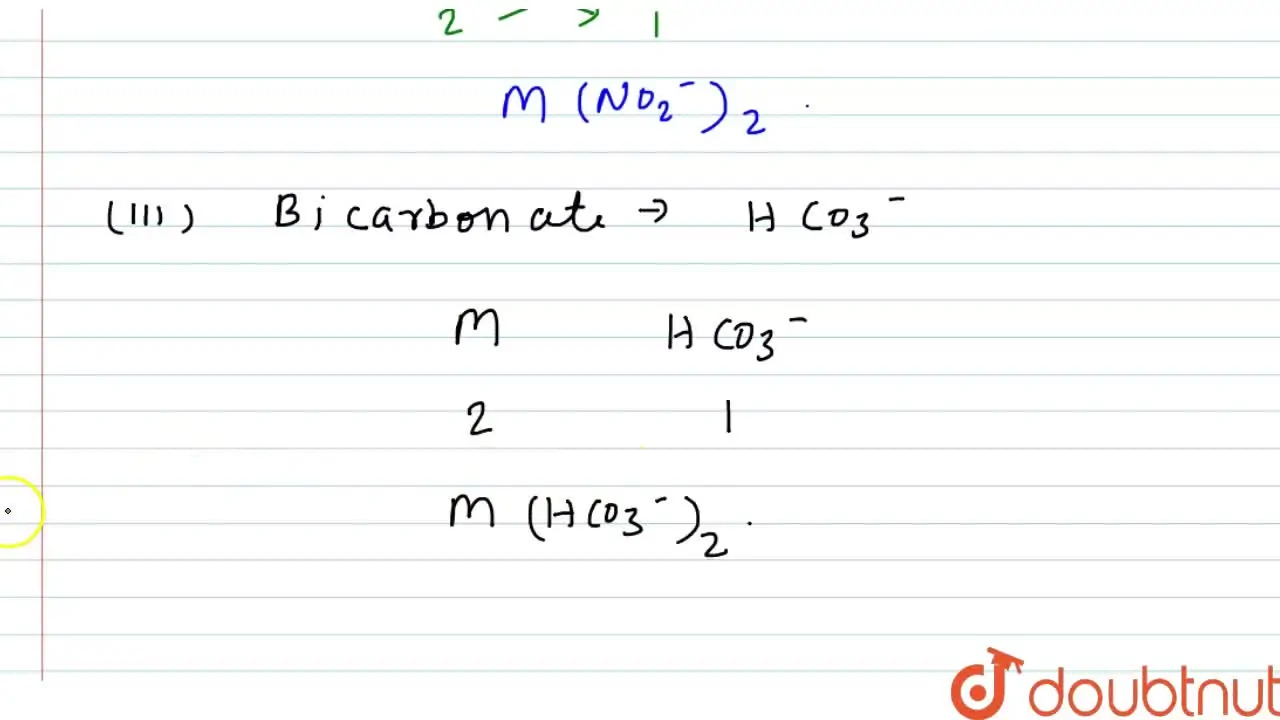 2 → 1
M (NO₂⁻)₂ .
(III) Bicarbonate → HCO₃⁻
M HCO₃⁻
2 1
M (HCO₃⁻)₂ .
doubtnut